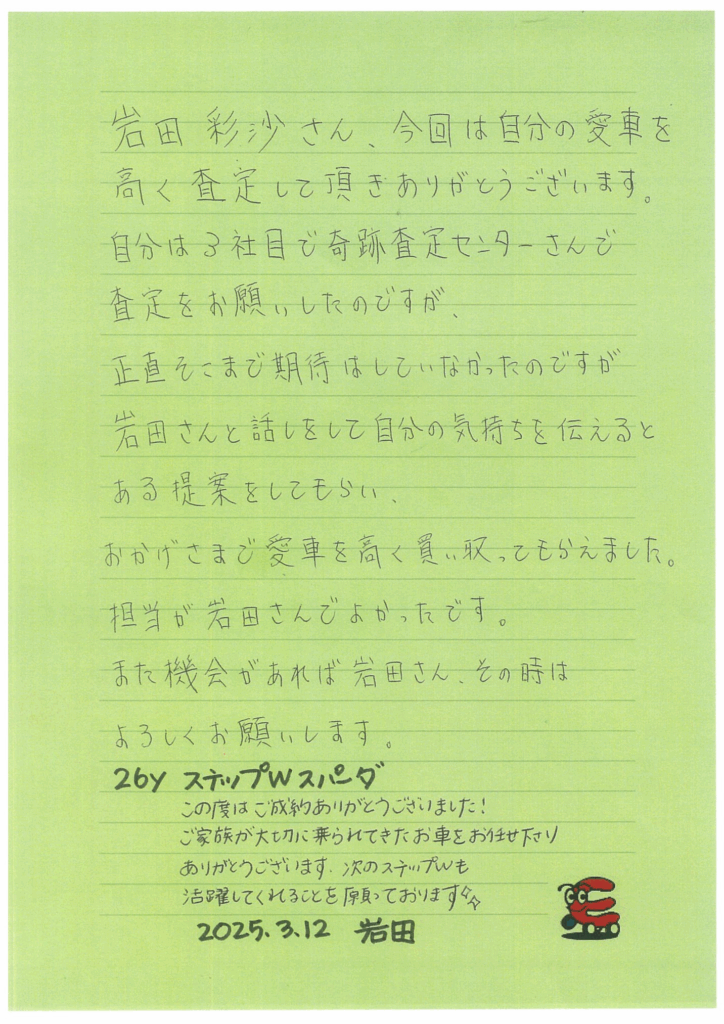 岩田 彩沙さん、今回は自分の愛車を
高く査定して頂きありがとうございます。
自分は3社目で奇跡査定センターさんで
査定をお願いしたのですが、
正直そこまで期待はしていなかったのですが
岩田さんと話しをして自分の気持ちを伝えると
ある提案をしてもらい、
おかげさまで愛車を高く買い取ってもらえました。
担当が岩田さんでよかったです。
また機会があれば岩田さん、その時は
よろしくお願いします。
26y ステップW スパーダ
この度はご成約ありがとうございました!
ご家族が大切に乗られてきたお車をお任せ下さり
ありがとうございます。次のステップWも
活躍してくれることを願っております
2025.3.12 岩田